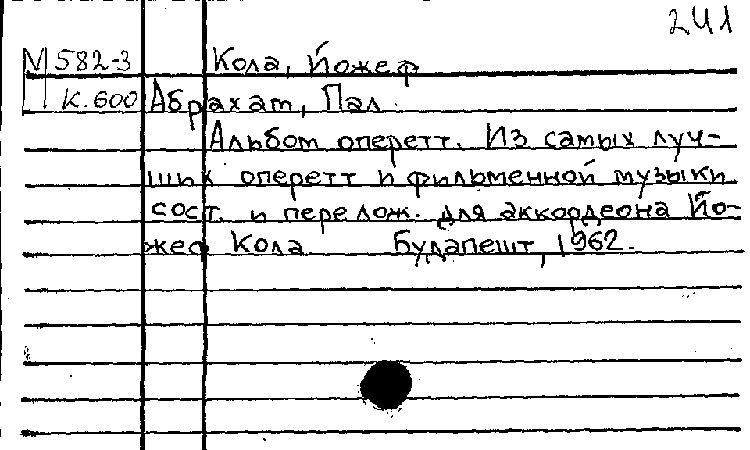 241
М 582-3 Кола, Йожеф
К.600 Абрахам, Пал.
Альбом оперетт. Из самых луч-
ших оперетт и фильменной музыки
сост. и перелож. для аккордеона Йо-
жеф Кола Будапешт, 1962.